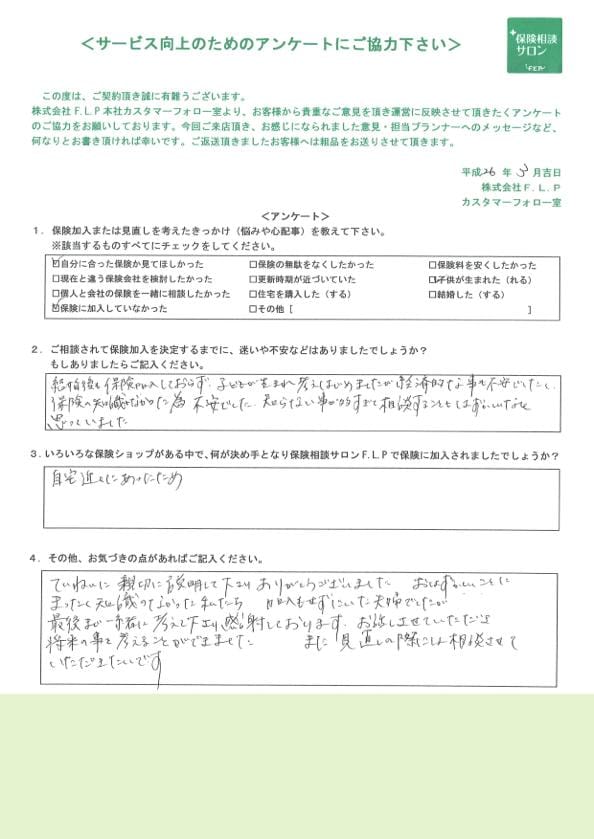 ＜サービス向上のためのアンケートにご協力下さい＞
保険相談
サロン
F.L.P
この度は、ご契約頂き誠に有難うございます。
株式会社F.L.P本社カスタマーフォロー室より、お客様から貴重なご意見を頂き運営に反映させて頂きたくアンケート
のご協力をお願いしております。今回ご来店頂き、お感じになられました意見・担当プランナーへのメッセージなど、
何なりとお書き頂ければ幸いです。ご返送頂きましたお客様へは粗品をお送りさせて頂きます。
平成26年3月吉日
株式会社F.L.P
カスタマーフォロー室
＜アンケート＞
1．保険加入または見直しを考えたきっかけ（悩みや心配事）を教えて下さい。
※該当するものすべてにチェックをしてください。
☑自分に合った保険か見てほしかった □保険の無駄をなくしたかった □保険料を安くしたかった
□現在と違う保険会社を検討したかった □更新時期が近づいていた ☑子供が生まれた（れる）
□個人と会社の保険を一緒に相談したかった □住宅を購入した（する） □結婚した（する）
☑保険に加入していなかった □その他［ ］
2．ご相談されて保険加入を決定するまでに、迷いや不安などはありましたでしょうか？
もしありましたらご記入ください。
結婚後も保険加入しておらず、子どもが生まれ考えはじめましたが経済的な事も不安でしたし、
保険の知識もなかった為 不安でした。知らない事が多すぎて相談することもはずかしいなと
思っていました
3．いろいろな保険ショップがある中で、何が決め手となり保険相談サロンF.L.Pで保険に加入されましたでしょうか？
自宅近くにあったため
4．その他、お気づきの点があればご記入ください。
ていねいに 親切に説明して下さり ありがとうございました おはずかしいことに
まったく知識のなかった私たち 加入もせずにいた夫婦でしたが
最後まで一緒に考えて下さり感謝しております。お話しさせていただき
将来の事を考えることができました また見直しの際には相談させて
いただきたいです